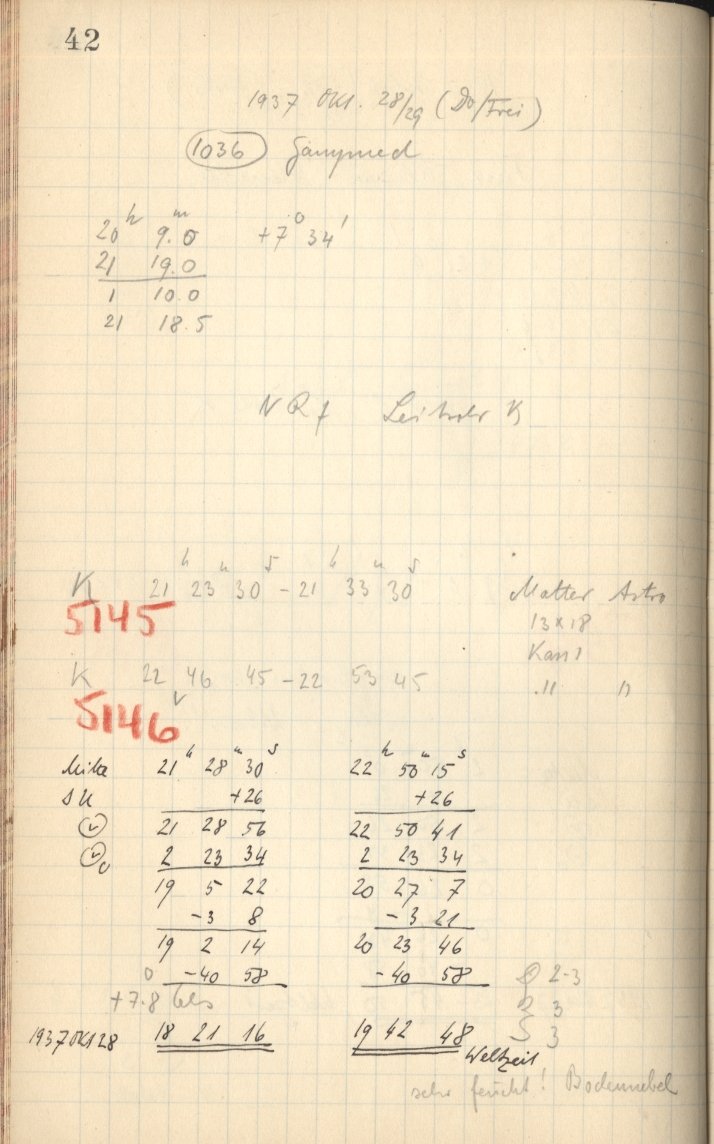 42
1937 OKT. 28/29 (Do/Frei)
1036 Ganymed
20 h 9. m 0 +7° 34'
21 19.0
1 10.0
21 18.5
N R f K
K 21 h 23 m 30 s - 21 h 33 m 30 s Matter Astro
5145 13x18
Kass 1
K 22 46 45 - 22 53 45 " "
5146 v
Mitte 21 h 28 m 30 s 22 h 50 m 15 s
SU +26 +26
21 28 56 22 50 41
2 23 34 2 23 34
19 5 22 20 27 7
-3 8 -3 21
19 2 14 20 23 46
0 -40 58 -40 58 2-3
+7.8 Cels 3
3
1937 OKT 28 18 21 16 19 42 48
Weltzeit
sehr feucht! Bodennebel